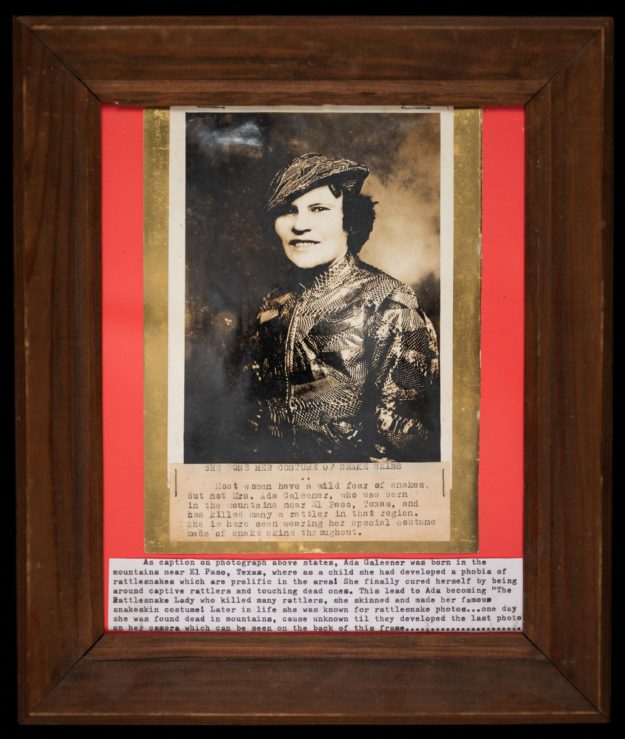 SHE DONS HER COSTUME OF SNAKE SKINS
..
Most women have a wild fear of snakes,
but not Mrs. Ada Galeener, who was born
in the mountains near El Paso, Texas, and
has killed many a rattler in that region.
She is here seen wearing her special costume
made of snake skins throughout.
As caption on photograph above states, Ada Galeener was born in the
mountains near El Paso, Texas, where as a child she had developed a phobia of
rattlesnakes which are prolific in the area! She finally cured herself by being
around captive rattlers and touching dead ones. This lead to Ada becoming "The
Rattlesnake Lady who killed many rattlers, she skinned and made her famous
snakeskin costume! Later in life she was known for rattlesnake photos...one day
she was found dead in mountains, cause unknown til they developed the last photo
on her camera which can be seen on the back of this frame........................